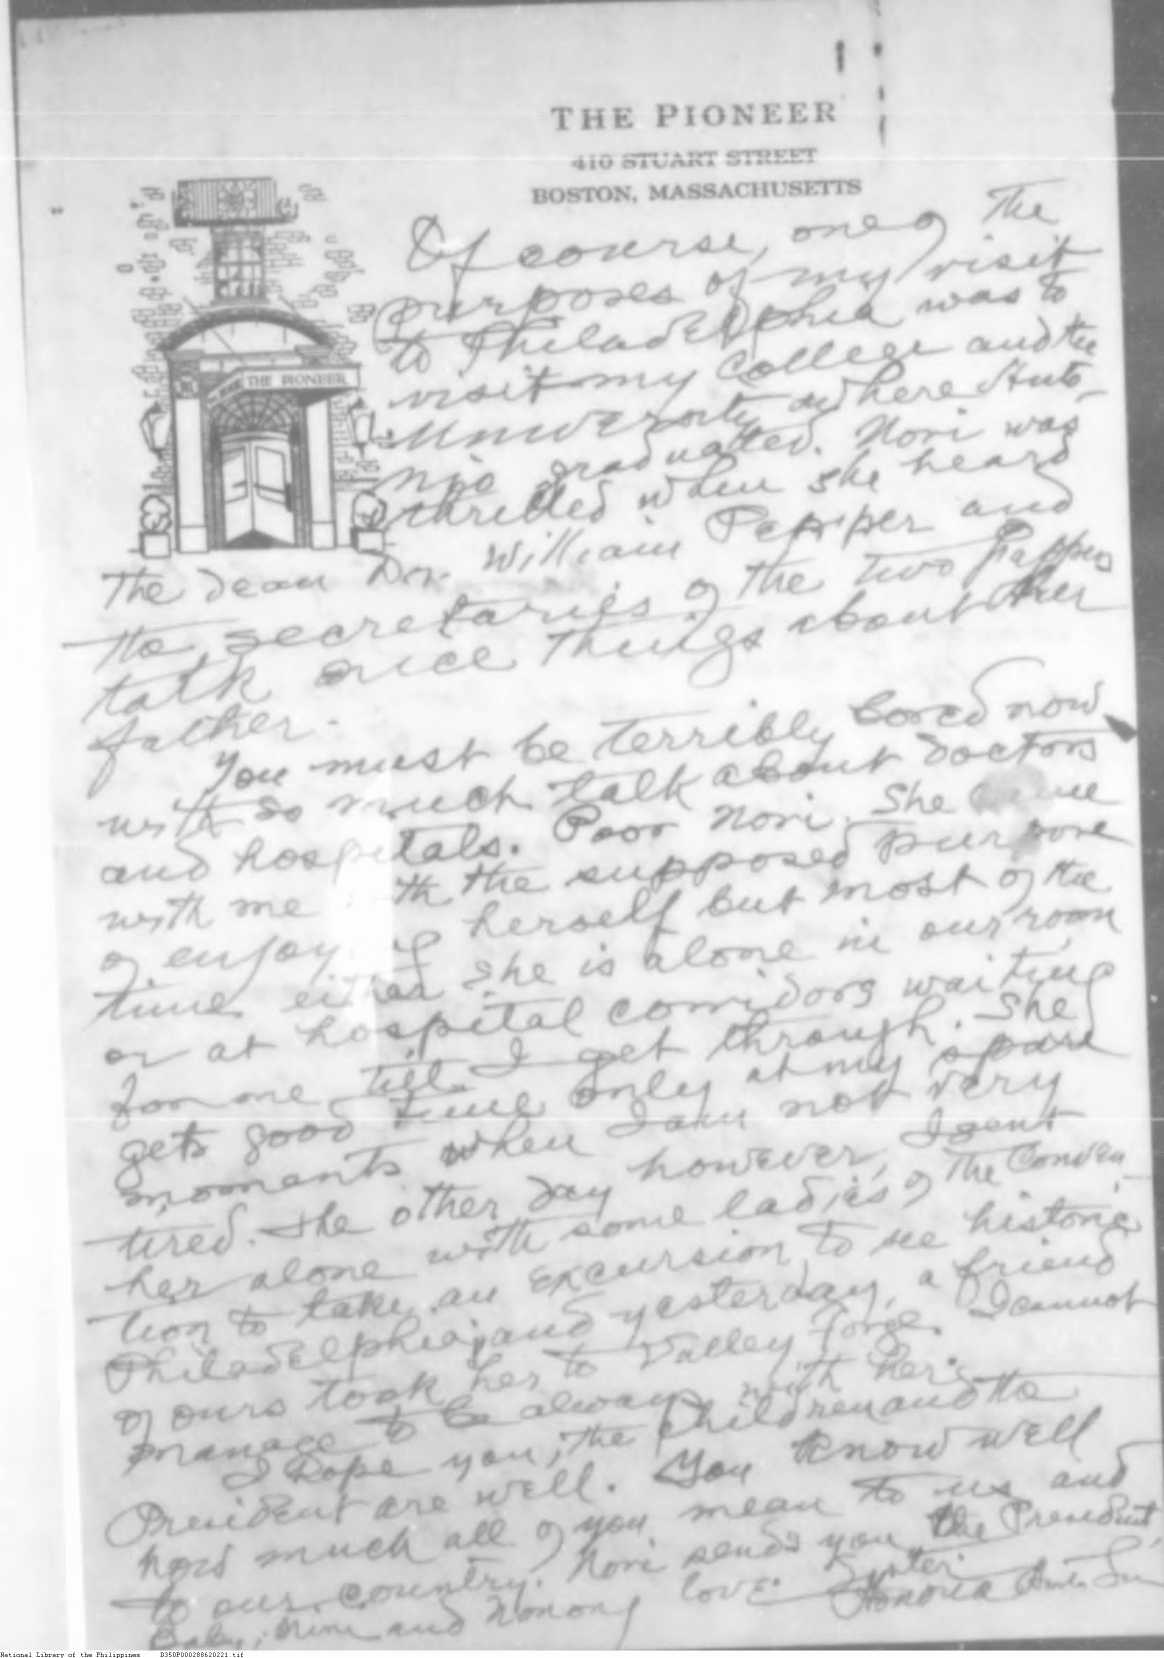 THE PIONEER
410 STUART STREET
BOSTON, MASSACHUSETTS
THE PIONEER
Of course, one of the
purposes of my visit
to Philadelphia was to
visit my college and the
University where Anto-
nio graduated. Nori was
thrilled when she heard
the dean Dr. William Pepper and
the secretaries of the two
talk nice things about her
father.
You must be terribly bored now
with so much talk about doctors
and hospitals. Poor Nori. She came
with me with the supposed purpose
of enjoying herself but most of the
time either she is alone in our room
or at hospital corridors waiting
for me till I get through. She
gets good time only at my spare
moments when I am not very
tired. The other day however, I sent
her alone with some ladies of the Conven-
tion to take an excursion to see historic
Philadelphia; and yesterday, a friend
of ours took her to Valley Forge. I cannot
manage to be always with her.
I hope you, the children and the
President are well. You know well
how much all of you mean to us and
to our country. Nori sends you, the President,
Baby, Nini and Nonong love.
Sister
Honoria
National Library of the Philippines D350P000288620221.tif